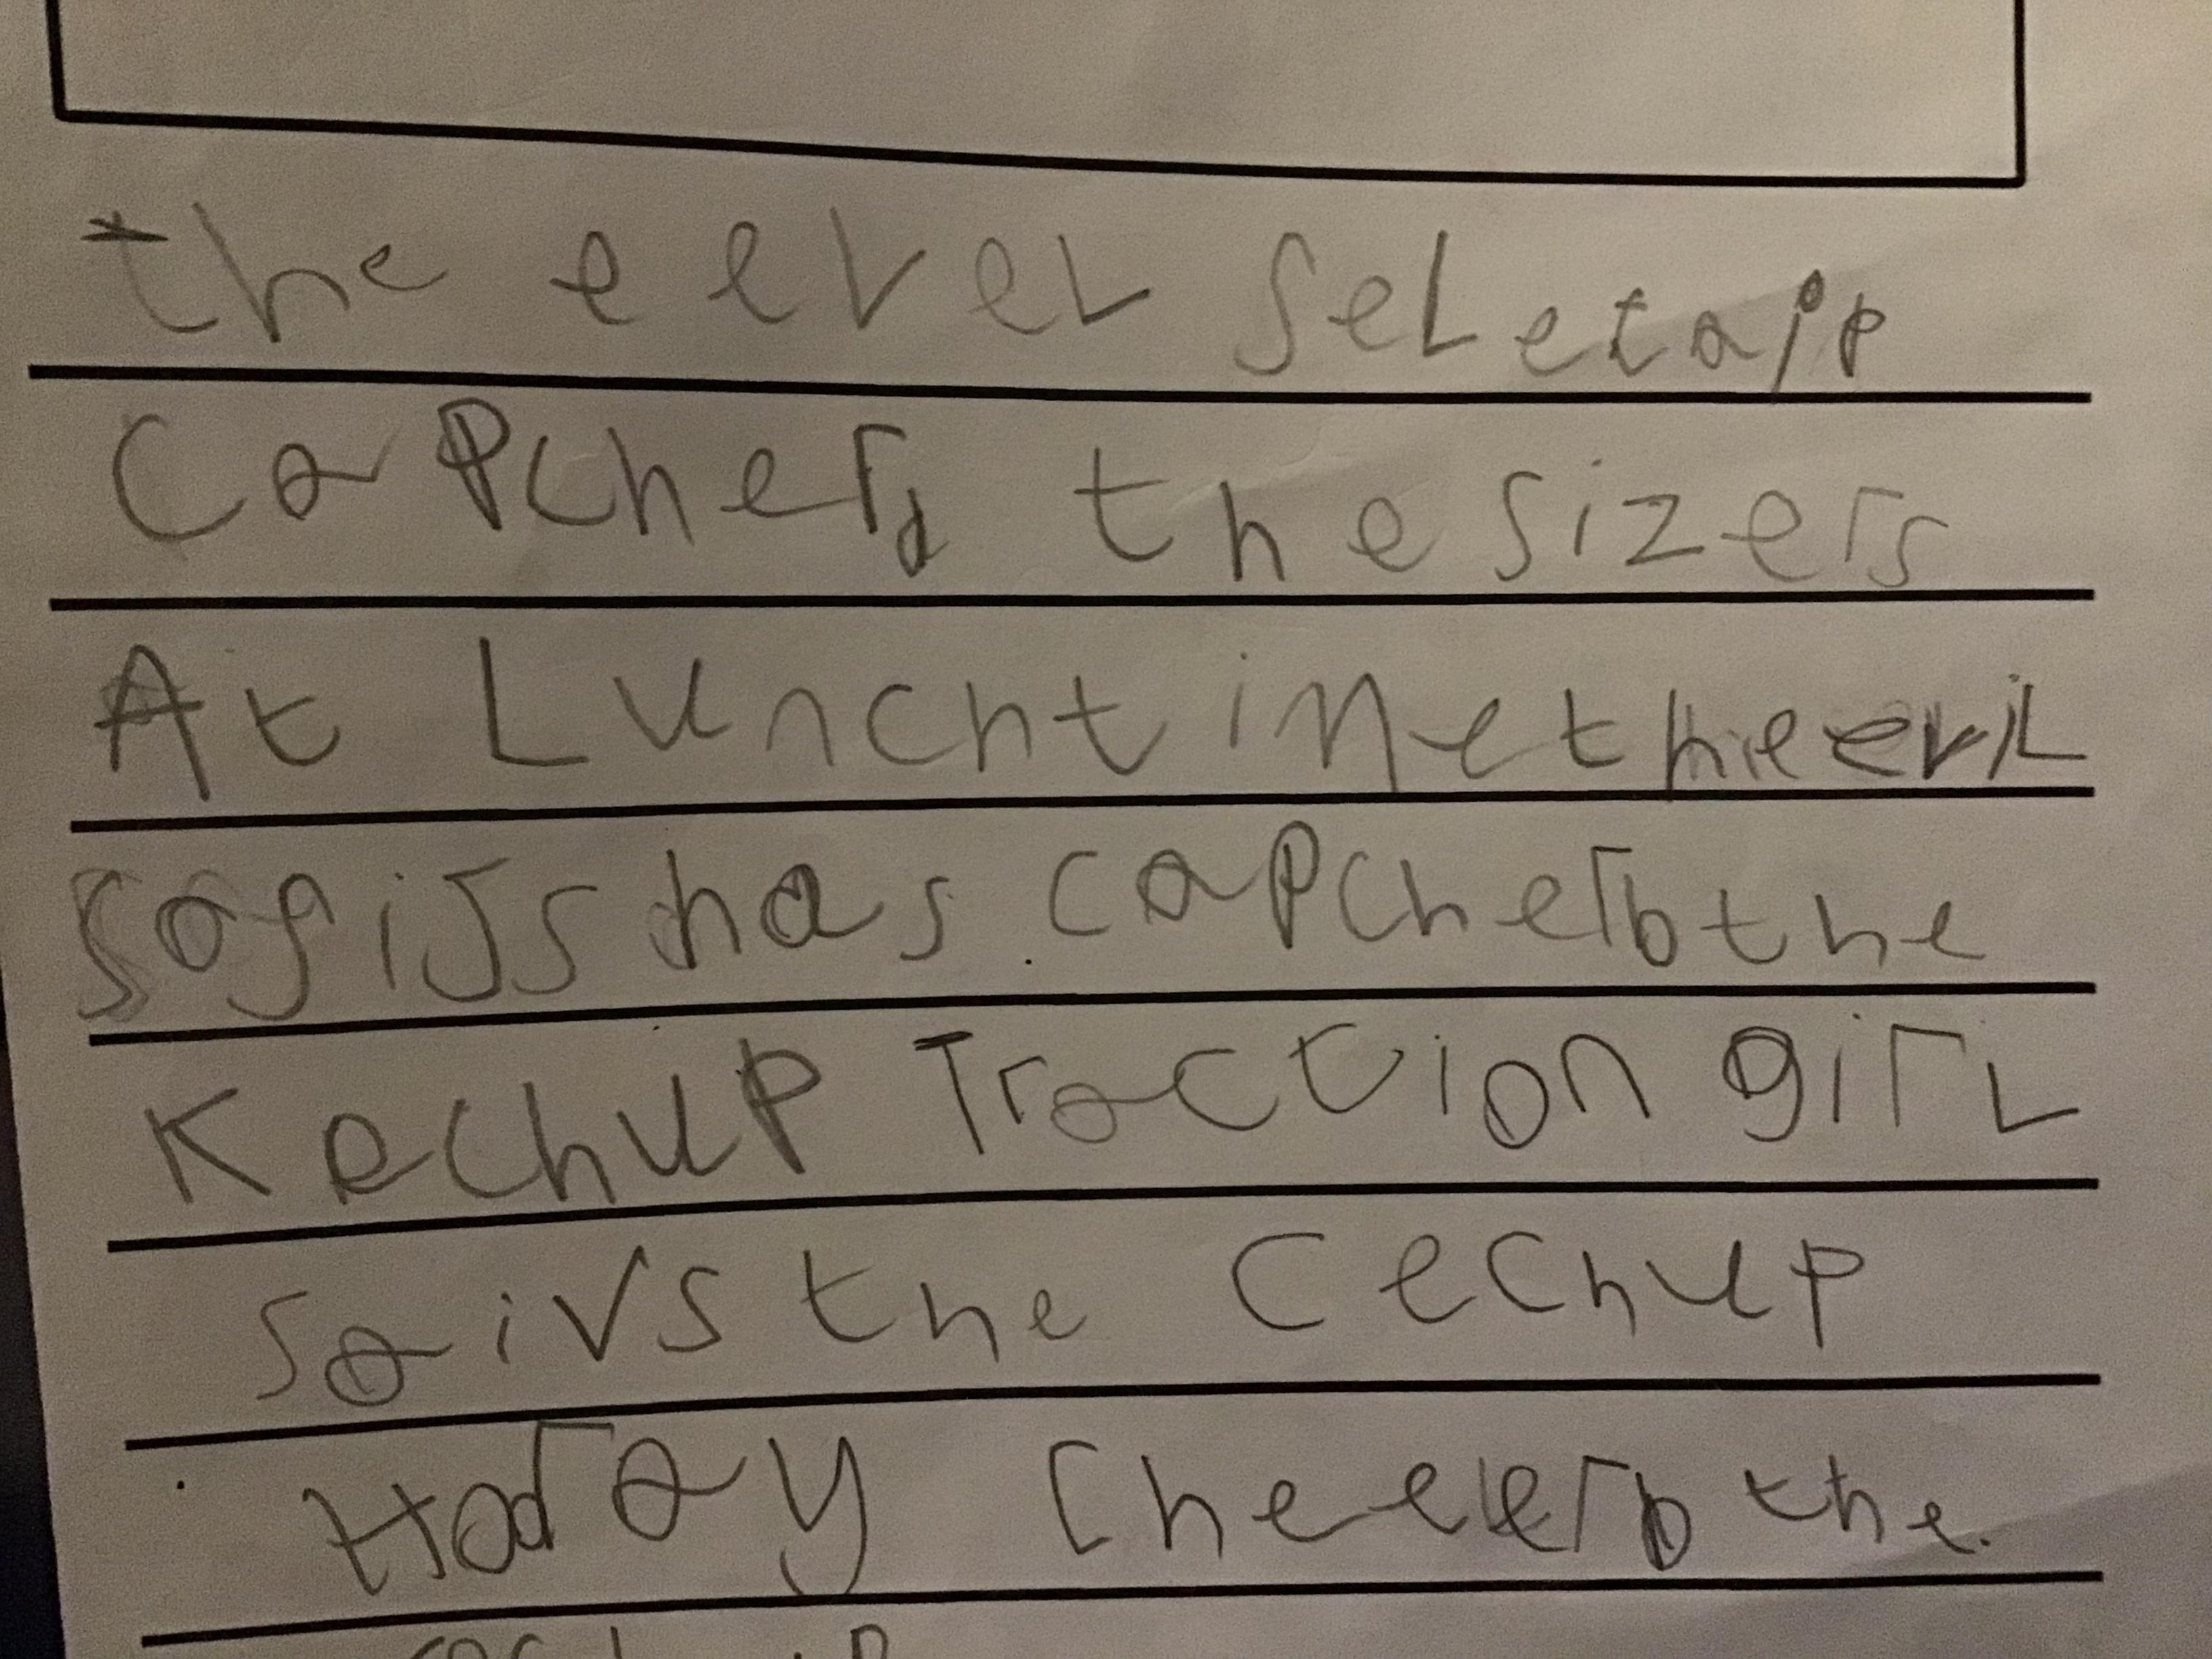 the eevel Seletaip
Capcherd the sizers
At Lunchtime the evil
sosijs has capcherb the
Kechup Traction girL
saivs the Cechup
Horay Cheeerb the